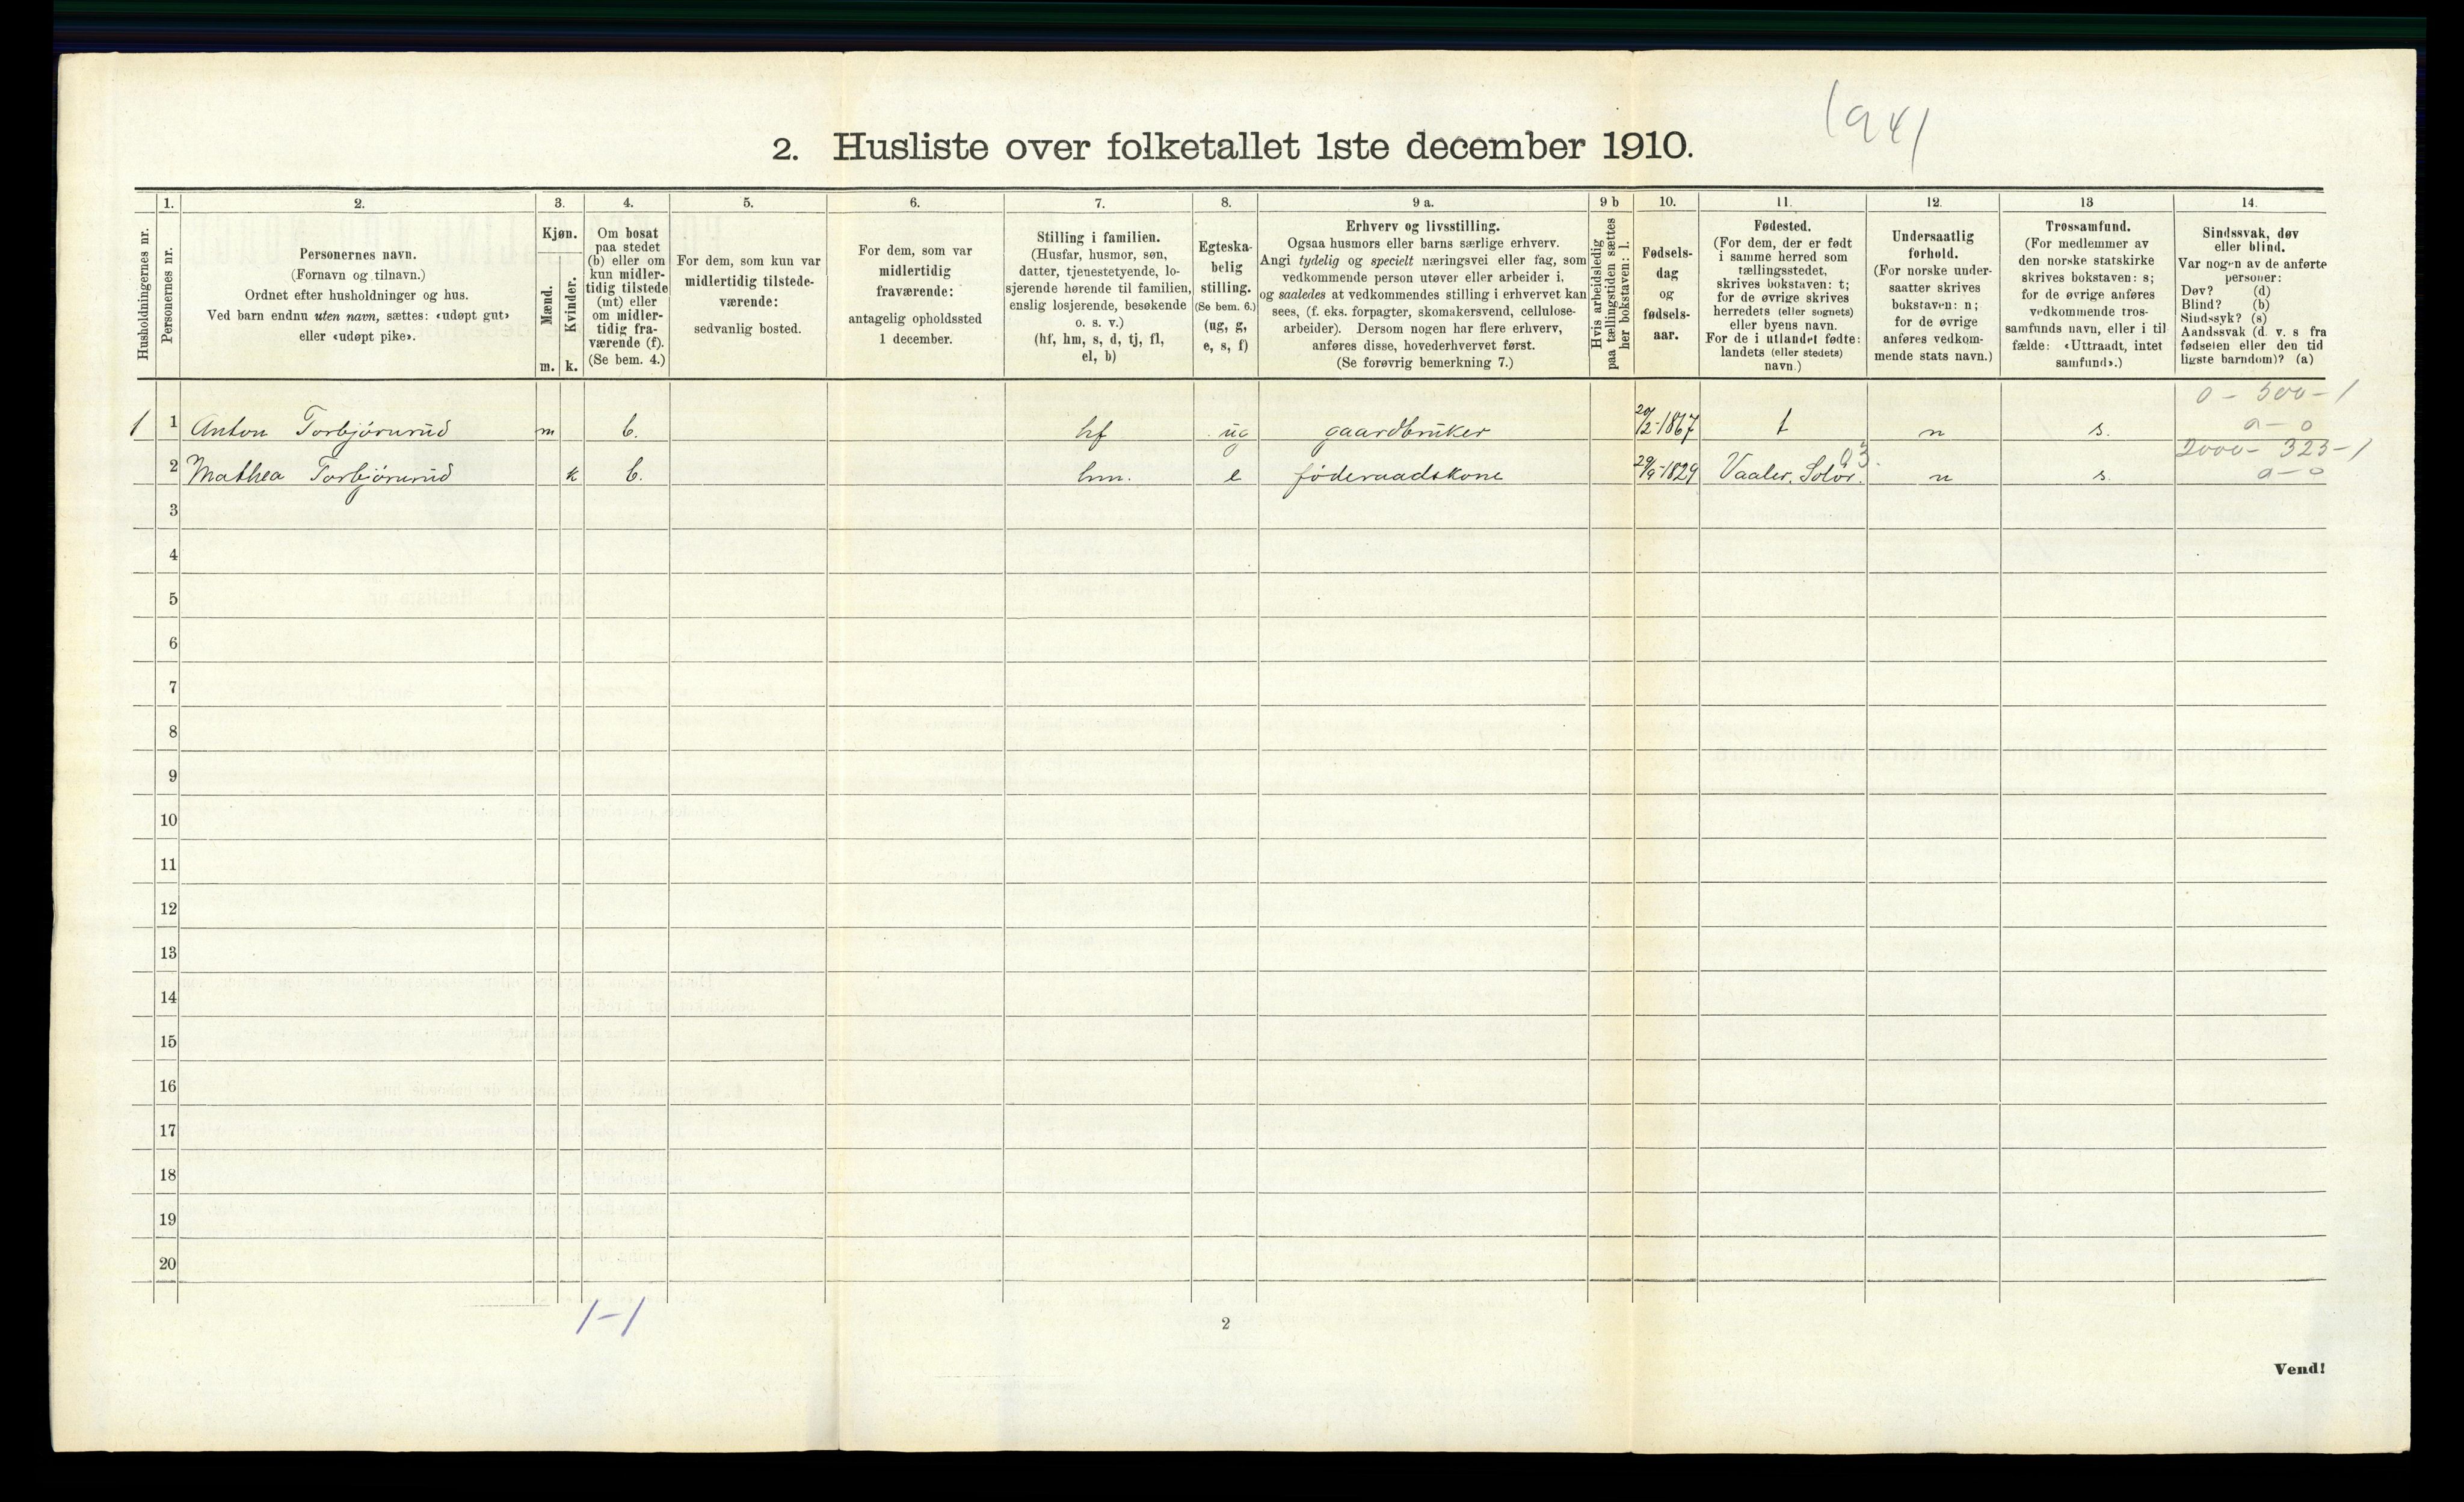 1941
2. Husliste over folketallet 1ste december 1910.
Husholdningernes nr.
1.
Personernes nr.
2.
Personernes navn.
(Fornavn og tilnavn.)
Ordnet efter husholdninger og hus.
Ved barn endnu uten navn, sættes: «udøpt gut»
eller «udøpt pike».
3.
Kjøn.
Mænd.
Kvinder.
m. k.
4.
Om bosat
paa stedet
(b) eller om
kun midler-
tidig tilstede
(mt) eller
om midler-
tidig fra-
værende (f).
(Se bem. 4.)
5.
For dem, som kun var
midlertidig tilstede-
værende:
sedvanlig bosted.
6.
For dem, som var
midlertidig
fraværende:
antagelig opholdssted
1 december.
7.
Stilling i familien.
(Husfar, husmor, søn,
datter, tjenestetyende, lo-
sjerende hørende til familien,
enslig losjerende, besøkende
o. s. v.)
(hf, hm, s, d, tj, fl,
el, b)
8.
Egteska-
belig
stilling.
(Se bem. 6.)
(ug, g,
e, s, f)
9 a.
Erhverv og livsstilling.
Ogsaa husmors eller barns særlige erhverv.
Angi tydelig og specielt næringsvei eller fag, som
vedkommende person utøver eller arbeider i,
og saaledes at vedkommendes stilling i erhvervet kan
sees, (f. eks. forpagter, skomakersvend, cellulose-
arbeider). Dersom nogen har flere erhverv,
anføres disse, hovederhvervet først.
(Se forøvrig bemerkning 7.)
9 b
Hvis arbeidsledig
paa tællingstiden sættes
her bokstaven: l.
10.
Fødsels-
dag
og
fødsels-
aar.
11.
Fødested.
(For dem, der er født
i samme herred som
tællingsstedet,
skrives bokstaven: t;
for de øvrige skrives
herredets (eller sognets)
eller byens navn.
For de i utlandet fødte:
landets (eller stedets)
navn.)
12.
Undersaatlig
forhold.
(For norske under-
saatter skrives
bokstaven: n;
for de øvrige
anføres vedkom-
mende stats navn.)
13
Trossamfund.
(For medlemmer av
den norske statskirke
skrives bokstaven: s;
for de øvrige anføres
vedkommende tros-
samfunds navn, eller i til-
fælde: «Uttraadt, intet
samfund».)
14.
Sindssvak, døv
eller blind.
Var nogen av de anførte
personer:
Døv? (d)
Blind? (b)
Sindssyk? (s)
Aandssvak (d. v. s fra
fødselen eller den tid-
ligste barndom)? (a)
0 - 500 - 1
1 1 Anton Torbjørnrud m b. hf ug gaardbruker 20/2-1867 t n s. 0 - 0
03. 2000 - 323 - 1
2 Mathea Torbjørnrud k b. hm. e føderaadskone 29/9-1829 Vaaler, Solør. n s. 0 - 0
3
4
5
6
7
8
9
10
11
12
13
14
15
16
17
18
19
20
1-1
2
Vend!